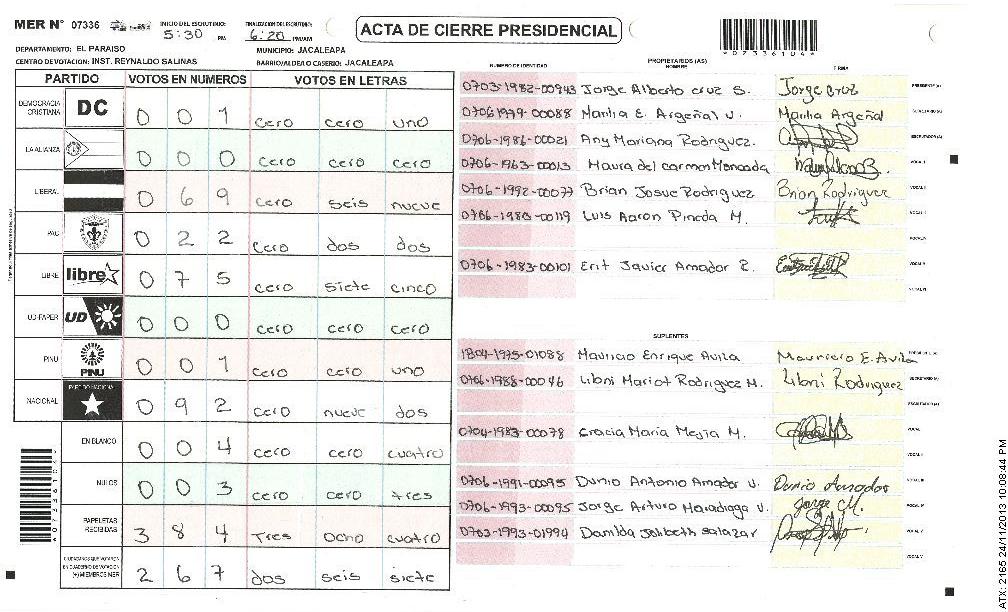 MER N° 07336
INICIO DEL ESCRUTINIO: 5:30 PM
FINALIZACION DEL ESCRUTINIO: 6:20 PM/AM
ACTA DE CIERRE PRESIDENCIAL
*07336104*
DEPARTAMENTO: EL PARAISO
MUNICIPIO: JACALEAPA
CENTRO DE VOTACION: INST. REYNALDO SALINAS
BARRIO/ALDEA O CASERIO: JACALEAPA
PARTIDO VOTOS EN NUMEROS VOTOS EN LETRAS
DEMOCRACIA CRISTIANA DC 0 0 1 cero cero uno
LA ALIANZA 0 0 0 cero cero cero
LIBERAL 0 6 9 cero seis nueve
PAC 0 2 2 cero dos dos
LIBRE libre 0 7 5 cero siete cinco
UD-FAPER UD 0 0 0 cero cero cero
PINU PINU 0 0 1 cero cero uno
NACIONAL PARTIDO NACIONAL 0 9 2 cero nueve dos
EN BLANCO 0 0 4 cero cero cuatro
NULOS 0 0 3 cero cero tres
PAPELETAS RECIBIDAS 3 8 4 Tres ocho cuatro
CIUDADANOS QUE VOTARON EN CUADERNO DE VOTACION (+) MIEMBROS MER 2 6 7 dos seis siete
PROPIETARIOS (AS)
NUMERO DE IDENTIDAD NOMBRE FIRMA
0703-1982-00943 Jorge Alberto cruz S. Jorge Cruz PRESIDENTE (A)
0706 1979-00088 Maritha E. Argeñal V. Maritha Argeñal SECRETARIO (A)
0706-1986-00021 Any Mariana Rodriguez. ESCRUTADOR (A)
0706-1963-00013 Maura del carmen Moncada VOCAL I
0706-1992-00077 Brian Josue Rodriguez Brian Rodriguez VOCAL II
0706-1980-00119 Luis Aaron Pineda M.
0706-1983-00101 Erit Javier Amador E. VOCAL V
VOCAL VI
SUPLENTES
1804-1975-01088 Mauricio Enrique Avila Mauricio E. Avila PRESIDENTE (A)
0706-1988-00046 Libni Mariot Rodriguez M. Libni Rodriguez SECRETARIO (A)
ESCRUTADOR (A)
0704-1983-00078 Gracia Maria Mejia M. VOCAL I
VOCAL II
0706-1991-00095 Dunio Antonio Amador V. Dunio Amador VOCAL III
0706-1993-00095 Jorge Arturo Maradiaga V. Jorge M. VOCAL IV
0703-1993-01994 Danilda Jolibeth Salazar VOCAL V
ATX: 2165 24/11/2013 10:08:44 PM